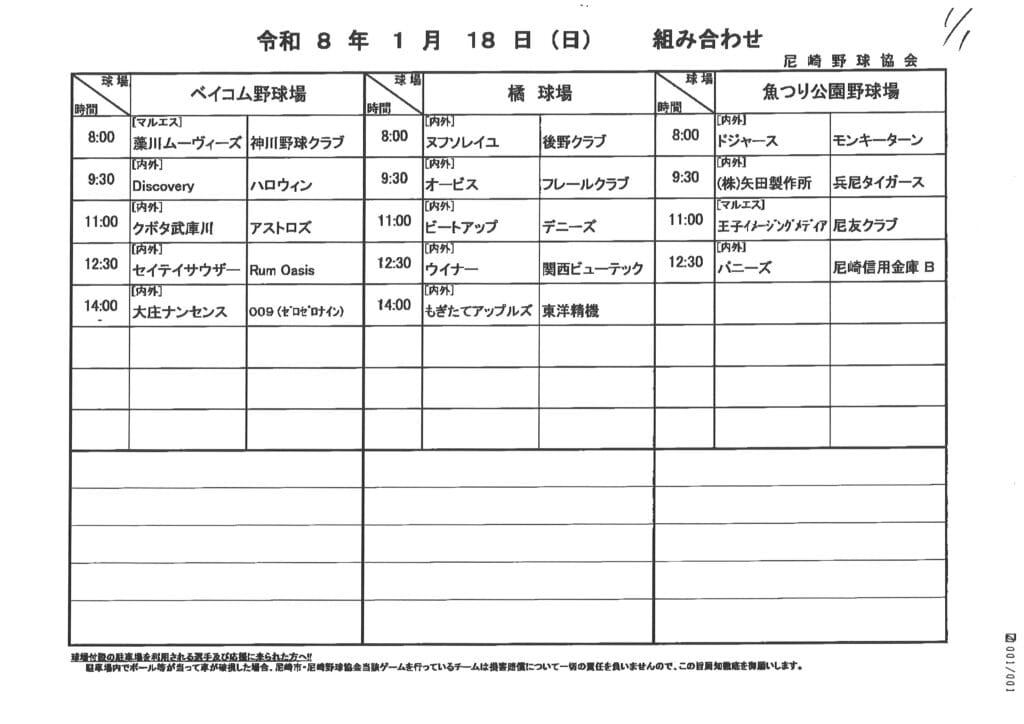 1/1
令和 8 年 1 月 18 日（日） 組み合わせ
尼崎野球協会
球場 時間 ベイコム野球場 球場 時間 橘 球場 球場 時間 魚つり公園野球場
8:00 [マルエス] 藻川ムーヴィーズ 神川野球クラブ 8:00 [内外] ヌフソレイユ 後野クラブ 8:00 [内外] ドジャース モンキーターン
9:30 [内外] Discovery ハロウィン 9:30 [内外] オービス フレールクラブ 9:30 [内外] (株)矢田製作所 兵尼タイガース
11:00 [内外] クボタ武庫川 アストロズ 11:00 [内外] ビートアップ デニーズ 11:00 [マルエス] 王子ｲﾒｰｼﾞﾝｸﾞﾒﾃﾞｨｱ 尼友クラブ
12:30 [内外] セイテイサウザー Rum Oasis 12:30 [内外] ウイナー 関西ビューテック 12:30 [内外] バニーズ 尼崎信用金庫 B
14:00 [内外] 大庄ナンセンス 009 (ｾﾞﾛｾﾞﾛﾅｲﾝ) 14:00 [内外] もぎたてアップルズ 東洋精機
球場付設の駐車場を利用される選手及び応援に来られた方へ!!
駐車場内でボール等が当って車が破損した場合、尼崎市・尼崎野球協会当該ゲームを行っているチームは損害賠償について一切の責任を負いませんので、この旨周知徹底を御願いします。
001/001